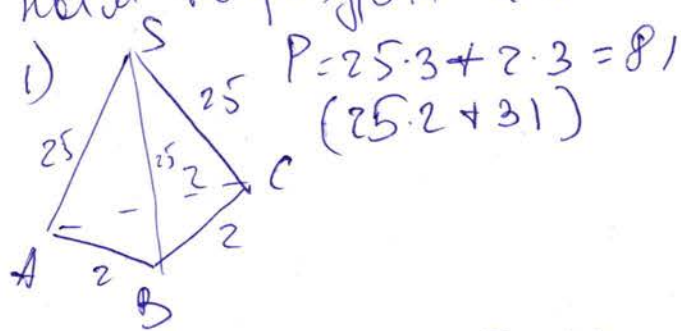 S
1) P=25·3+2·3=81
(25·2+31)
25
25
25
2
C
2
A
2
B